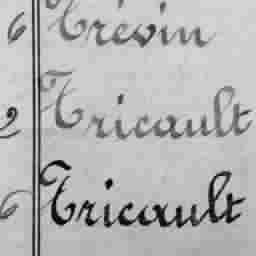 6 Trévin
2 Tricault
6 Tricault